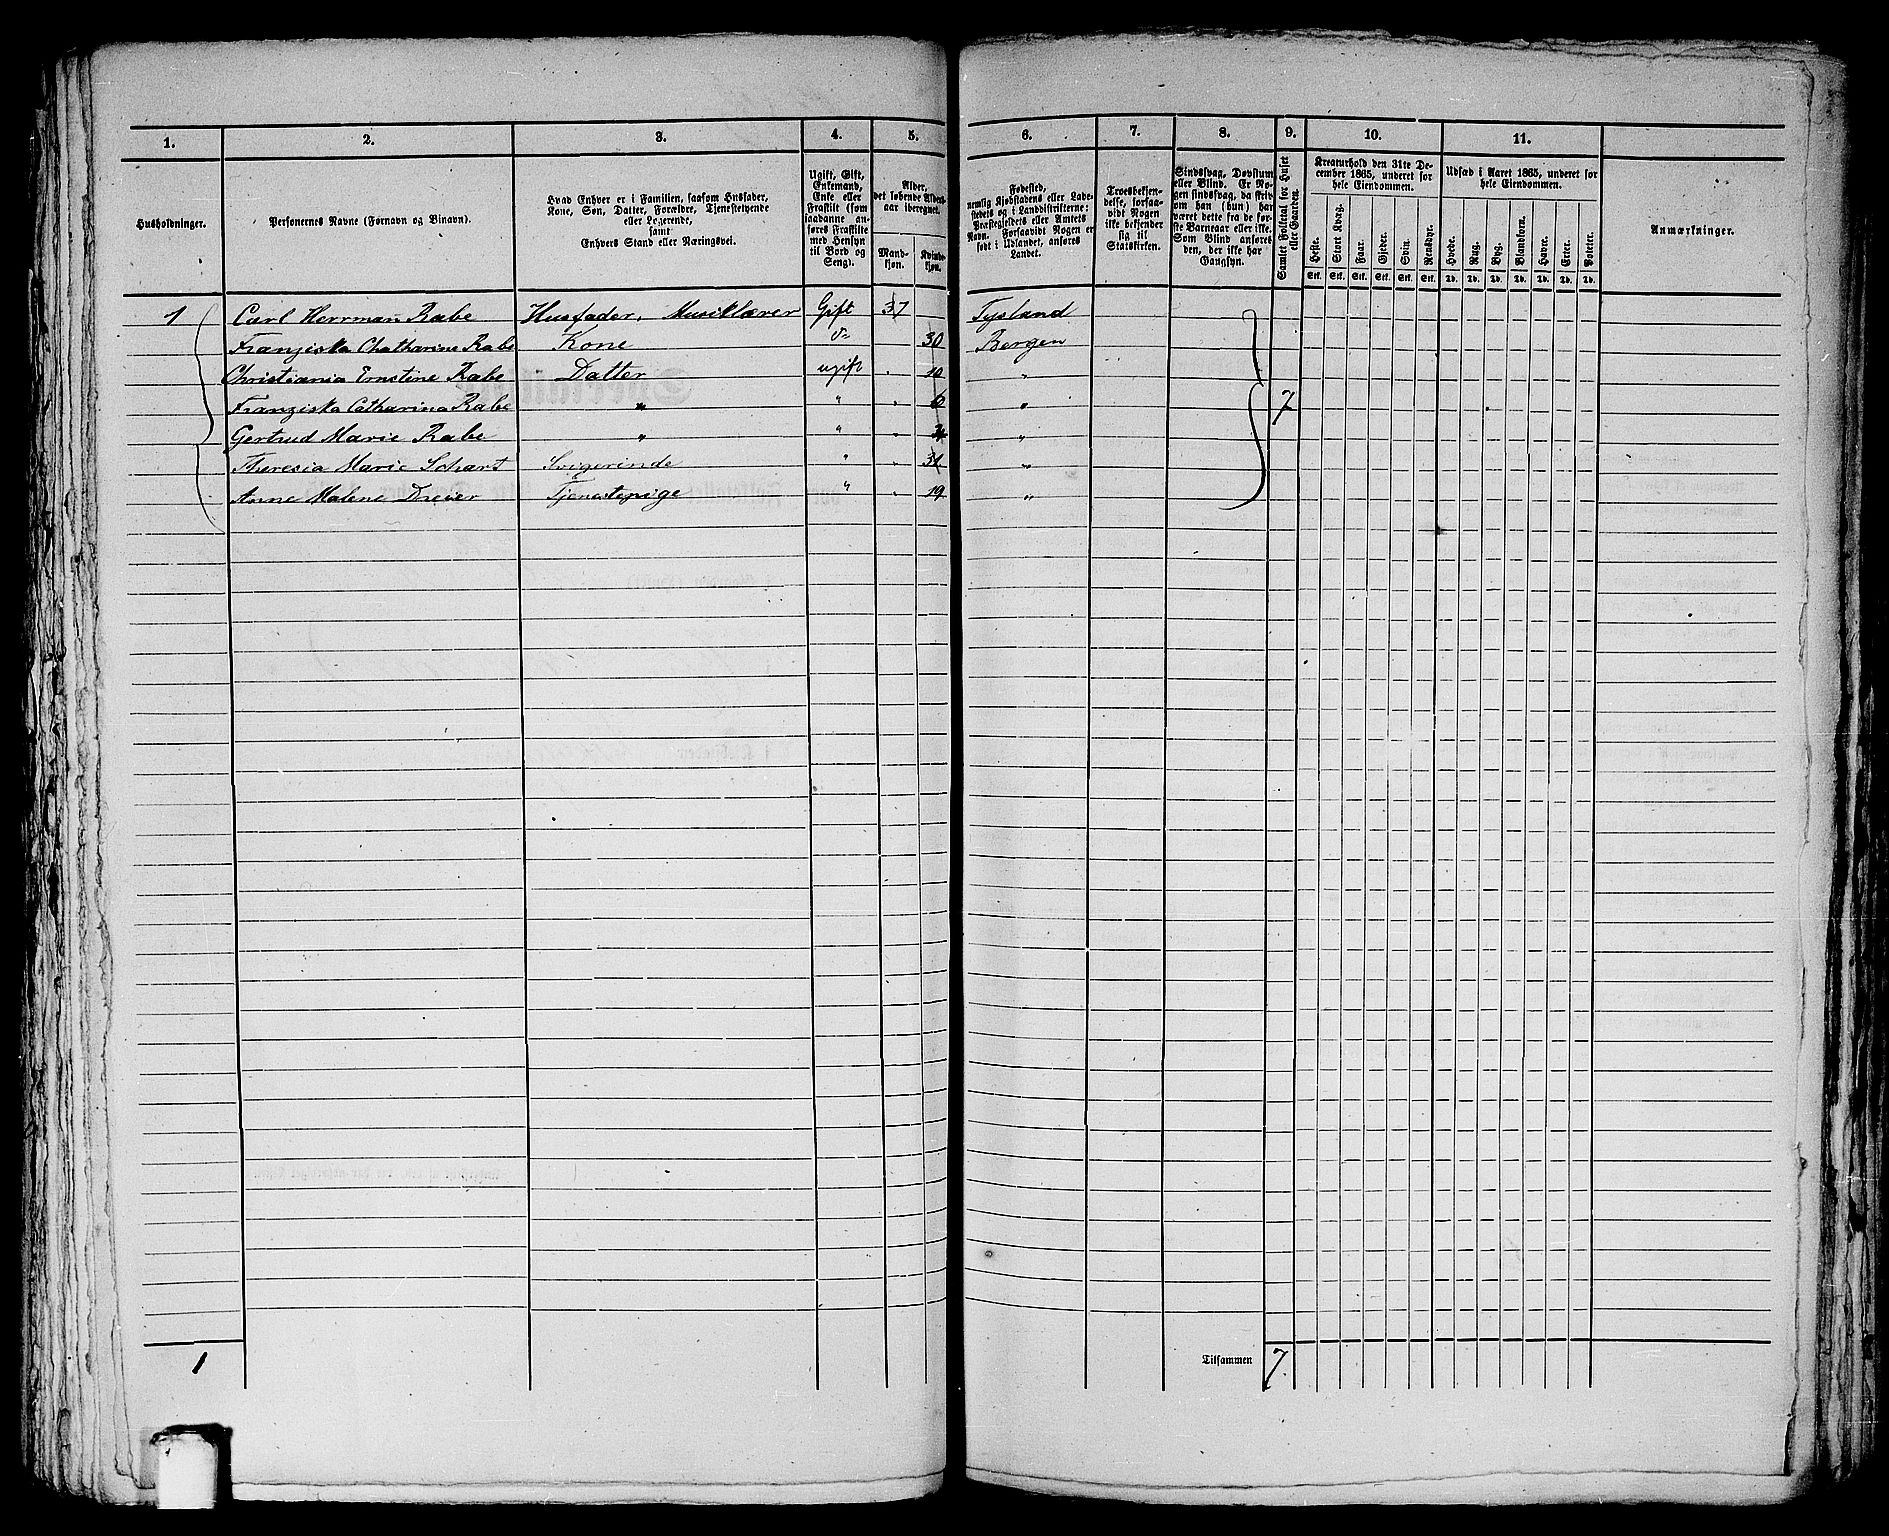 1. 2. 3. 4. 5. 6. 7. 8. 9. 10. 11.
Husholdninger.
Personernes Navne (Fornavn og Binavn).
Hvad Enhver er i Familien, saasom Husfader,
Kone, Søn, Datter, Forældre, Tjenestetyende
eller Logerende,
samt
Enhvers Stand eller Næringsvei.
Ugift, Gift,
Enkemand,
Enke eller
Fraskilt (som
saadanne an-
føres Fraskilte
med Hensyn
til Bord og
Seng).
Alder,
det løbende Alders-
aar iberegnet.
Mand-
kjøn.
Kvinde-
kjøn.
Fødested,
nemlig Kjøbstadens eller Lade-
stedets og i Landdistrikterne:
Præstegjeldets eller Amtets
Navn. Forsaavidt Nogen er
født i Udlandet, anføres
Landet.
Troesbekjen-
delse, forsaa-
vidt Nogen
ikke bekjender
sig til
Statskirken.
Sindssvag, Døvstum
eller Blind. Er No-
gen sindssvag, da skriv
om han (hun) har
været dette fra de før-
ste Barneaar eller ikke.
Som Blind anføres
den, der ikke har
Gangsyn.
Samlet Folketal for Huset
eller Gaarden.
Kreaturhold den 31te De-
cember 1865, underet for
hele Eiendommen.
Heste. Stort Kvæg. Faar. Gjeder. Svin. Rensdyr.
Stk. Stk. Stk. Stk. Stk. Stk.
Udsæd i Aaret 1865, underet for
hele Eiendommen.
Hvede. Rug. Byg. Blandkorn. Havre. Erter. Poteter.
Td. Td. Td. Td. Td. Td. Td.
Anmærkninger.
1 Carl Herrman Rabe Husfader, Musiklærer Gift 37 Tysland
Franziska Chatharine Rabe Kone do 30 Bergen
Christiania Ernstine Rabe Datter ugift " 10 "
Franziska Catharina Rabe " " " 6 " 7
Gertrud Marie Rabe " " " "
Theresia Marie Schart Svigerinde " " 31 "
Anne Malene Dreier Tjenestepige " " 19 "
1 Tilsammen 7